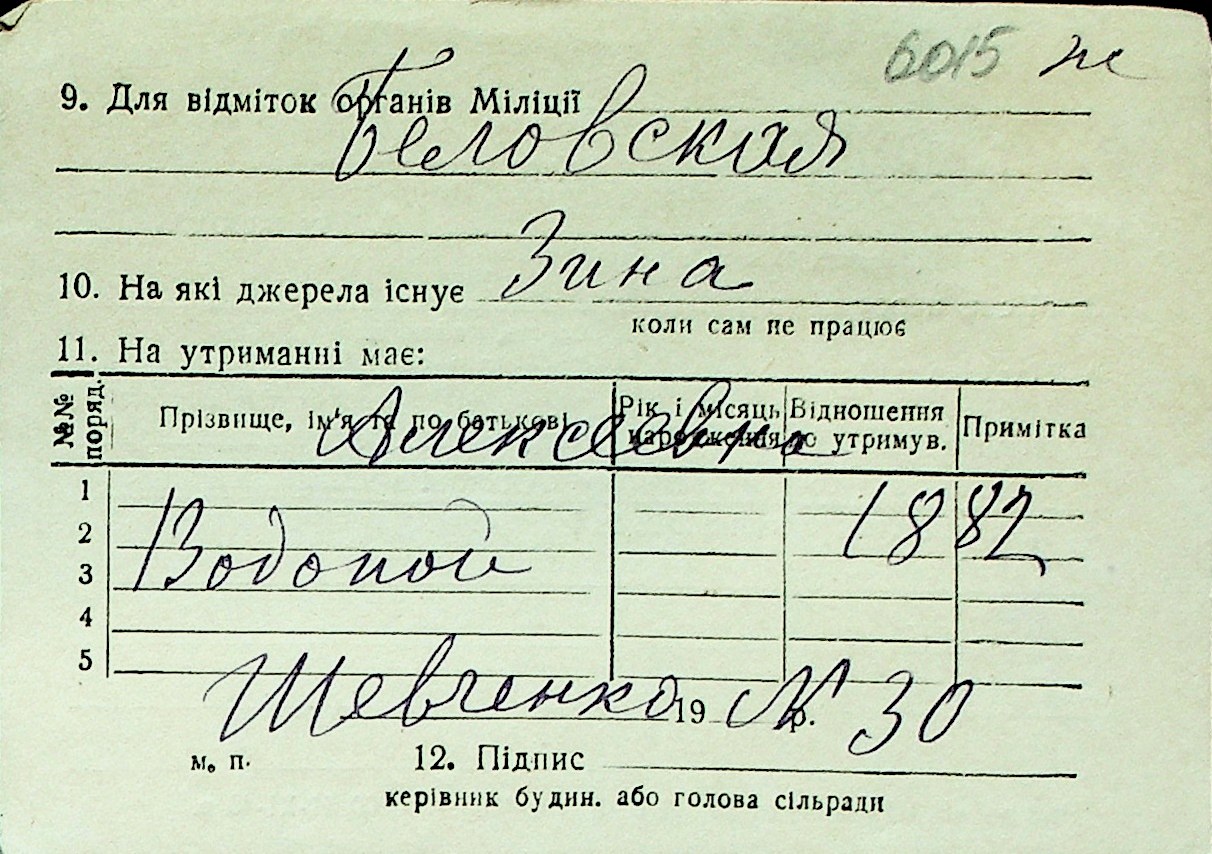 6015 ж
9. Для відміток органів Міліції
Беловская
Зина
10. На які джерела існує
коли сам не працює
11. На утриманні має:
№№ поряд. Прізвище, ім'я та по батькові Рік і місяць народження Відношення до утримув. Примітка
Алексеевна
1
1882
2
Водопой
3
4
5
Шевченко 19 № р. 30
м. п. 12. Підпис
керівник будин. або голова сільради